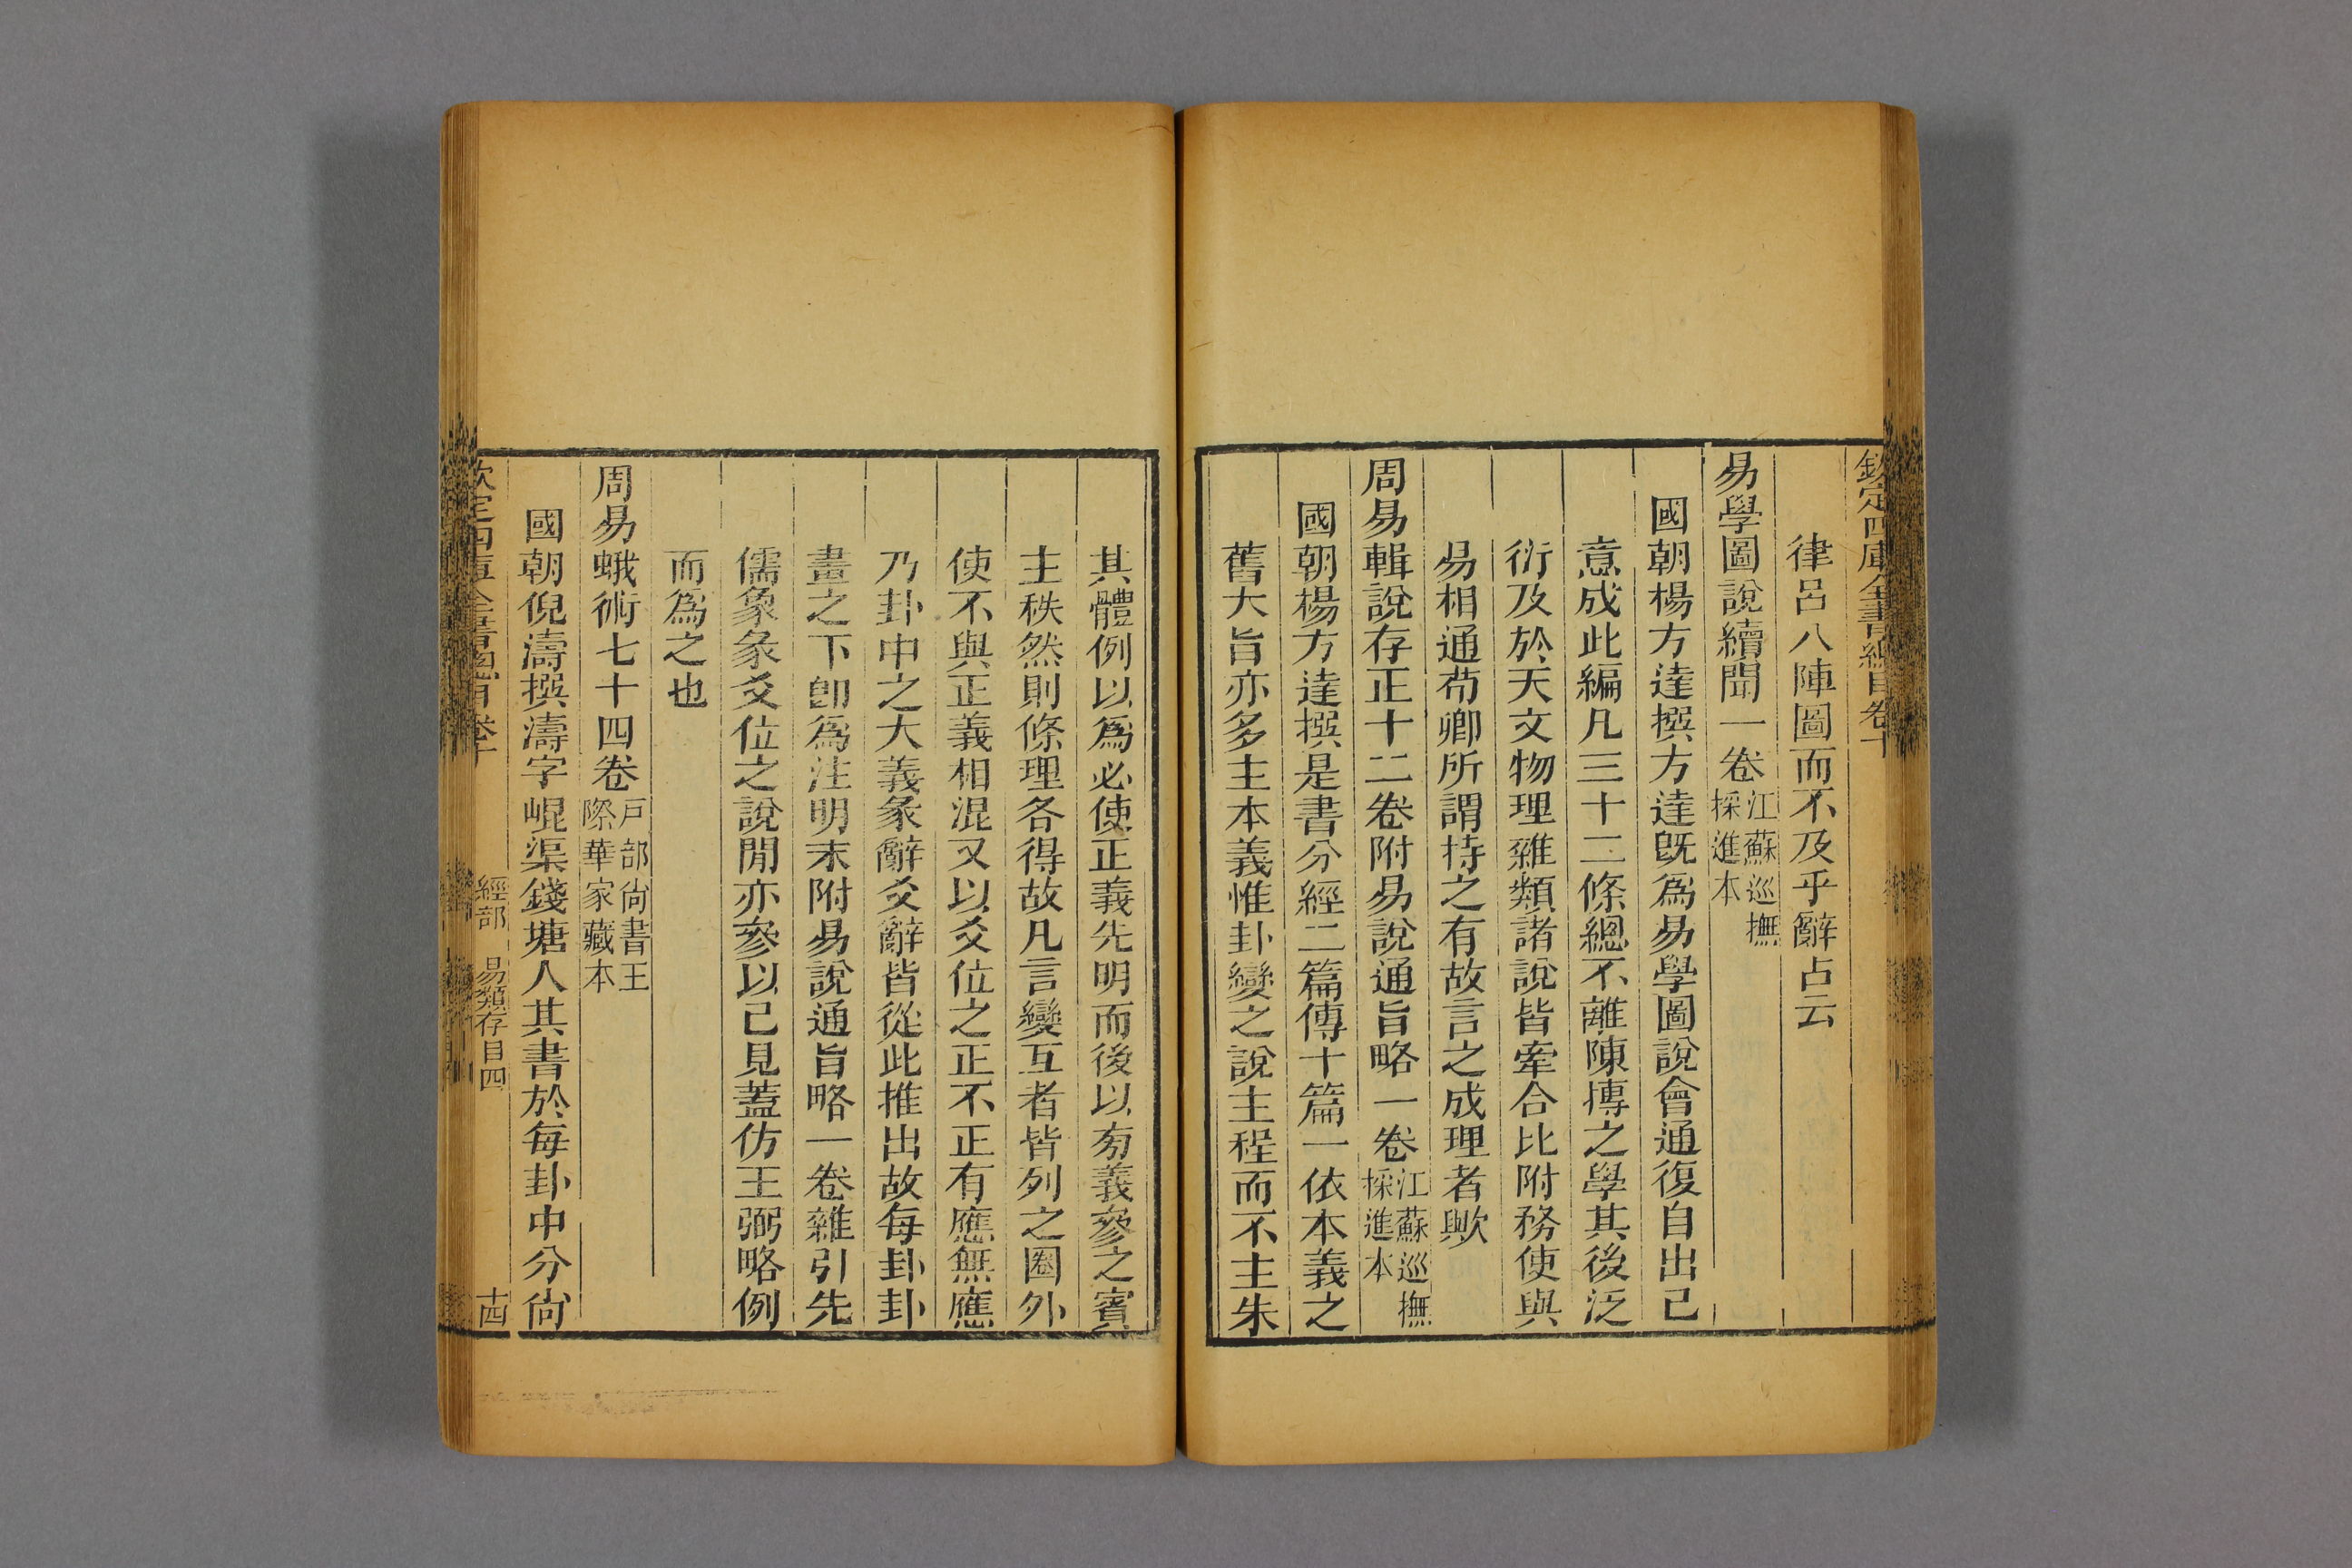 欽定四庫全書總目卷十
律呂八陣圖而不及乎辭占云
易學圖說續聞一卷江蘇巡撫採進本
國朝楊方達撰方達旣爲易學圖說會通復自出己
意成此編凡三十二條總不離陳摶之學其後泛
衍及於天文物理雜類諸說皆牽合比附務使與
易相通荀卿所謂持之有故言之成理者歟
周易輯說存正十二卷附易說通旨略一卷江蘇巡撫採進本
國朝楊方達撰是書分經二篇傳十篇一依本義之
舊大旨亦多主本義惟卦變之說主程而不主朱
其體例以爲必使正義先明而後以旁義參之賓
主秩然則條理各得故凡言變互者皆列之圈外
使不與正義相混又以爻位之正不正有應無應
乃卦中之大義彖辭爻辭皆從此推出故每卦卦
畫之下卽爲注明末附易說通旨略一卷雜引先
儒象彖爻位之說閒亦參以己見蓋仿王弼略例
而爲之也
周易蛾術七十四卷戶部尙書王際華家藏本
國朝倪濤撰濤字崐渠錢塘人其書於每卦中分尙
欽定四庫全書總目卷十
經部 易類存目四
十四